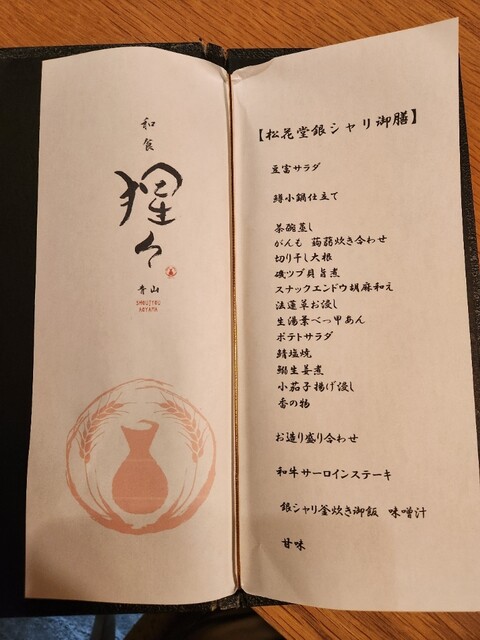 和食
猩々
青山
SHOUJYOU
AOYAMA
【松花堂銀シャリ御膳】
豆富サラダ
鱒小鍋仕立て
茶碗蒸し
がんも 蒟蒻炊き合わせ
切り干し大根
磯ツブ貝旨煮
スナックエンドウ胡麻和え
法蓮草お浸し
生湯葉べっ甲あん
ポテトサラダ
鯖塩焼
鰯生姜煮
小茄子揚げ浸し
香の物
お造り盛り合わせ
和牛サーロインステーキ
銀シャリ釜炊き御飯 味噌汁
甘味